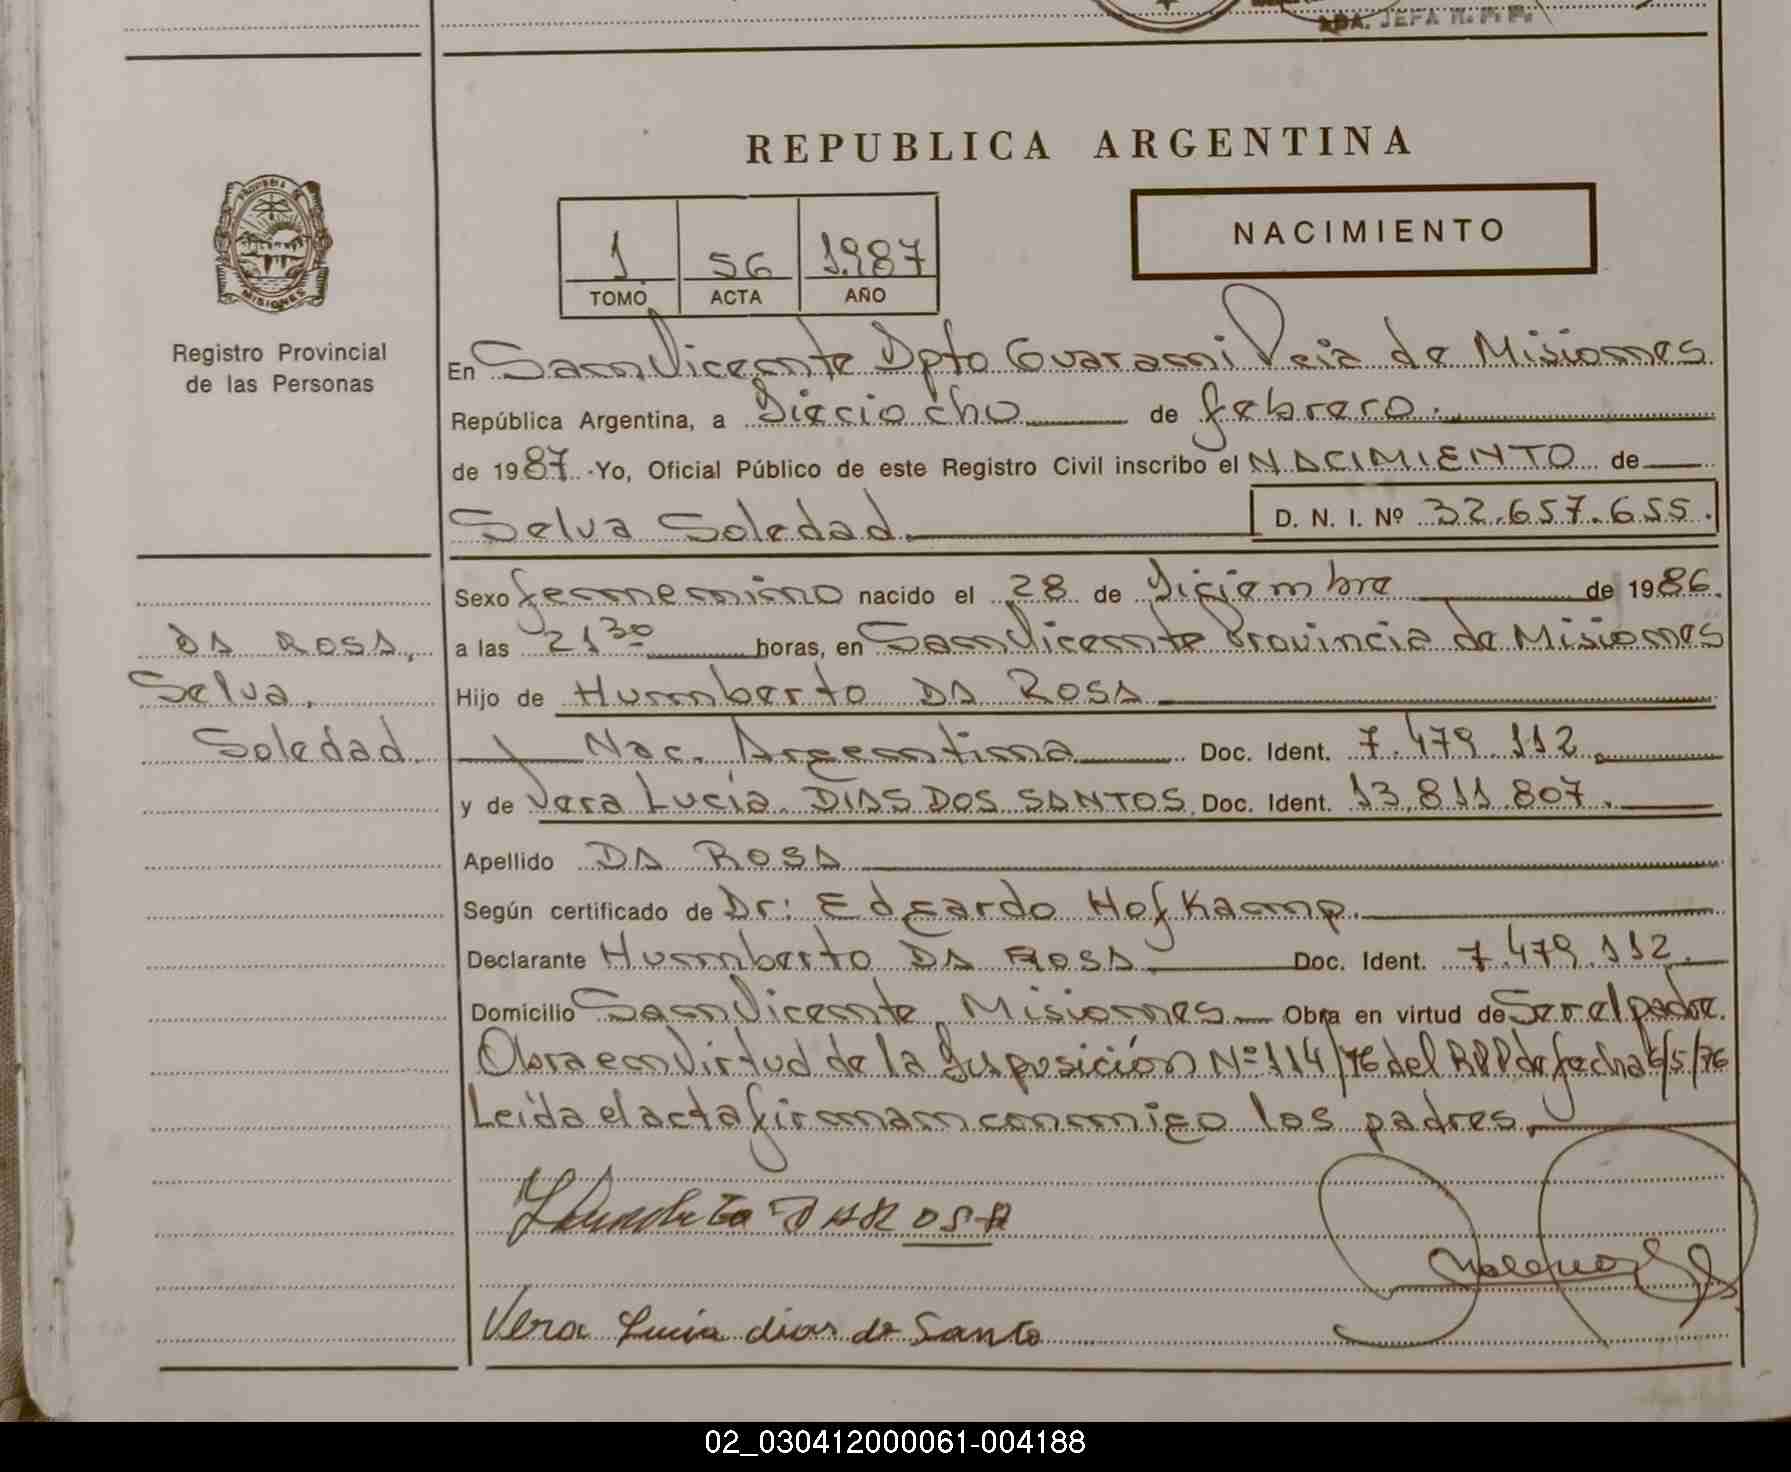 ADA. JEFA R. P. P.
REPUBLICA ARGENTINA
NACIMIENTO
1 56 1.987
TOMO ACTA AÑO
PROVINCIA
MISIONES
Registro Provincial
de las Personas
En San Vicente Dpto Guarani Pcia de Misiones
República Argentina, a Dieciocho de febrero.
de 1987. Yo, Oficial Público de este Registro Civil inscribo el NACIMIENTO de
Selva Soledad. D. N. I. Nº 32.657.655.
Sexo femenino nacido el 28 de Diciembre de 1986.
DA ROSA, a las 21 30 horas, en San Vicente Provincia de Misiones
Selva, Hijo de Humberto DA ROSA
Soledad. Nac. Argentina Doc. Ident. 7.479.112.
y de Vera Lucía DIAS DOS SANTOS. Doc. Ident. 13.811.807.
Apellido DA ROSA
Según certificado de Dr: Edgardo Hofkamp.
Declarante Humberto DA ROSA Doc. Ident. 7.479.112.
Domicilio San Vicente, Misiones Obra en virtud de Ser el padre.
Obra en Virtud de la Disposición Nº 114/76 del RPP de fecha 6/5/76
Leída el acta firman conmigo los padres.
DAROSA
Vera Lucia dias do Santo
02_030412000061-004188